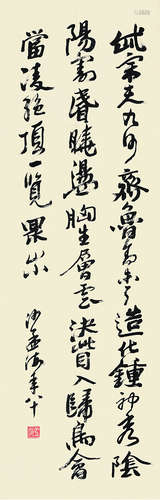 岱宗夫如何齊魯青未了造化鍾神秀陰
陽割昏曉盪胸生層雲決眥入歸鳥會
當凌絶頂一覽眾山小
沙孟海年八十